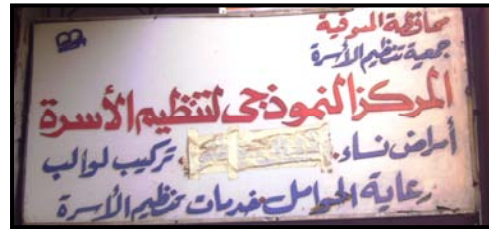 محافظة المنوفية
جمعية تنظيم الأسرة
المركز النموذجى لتنظيم الأسرة
أمراض نساء. تركيب لوالب
رعاية الحوامل. خدمات تنظيم الأسرة